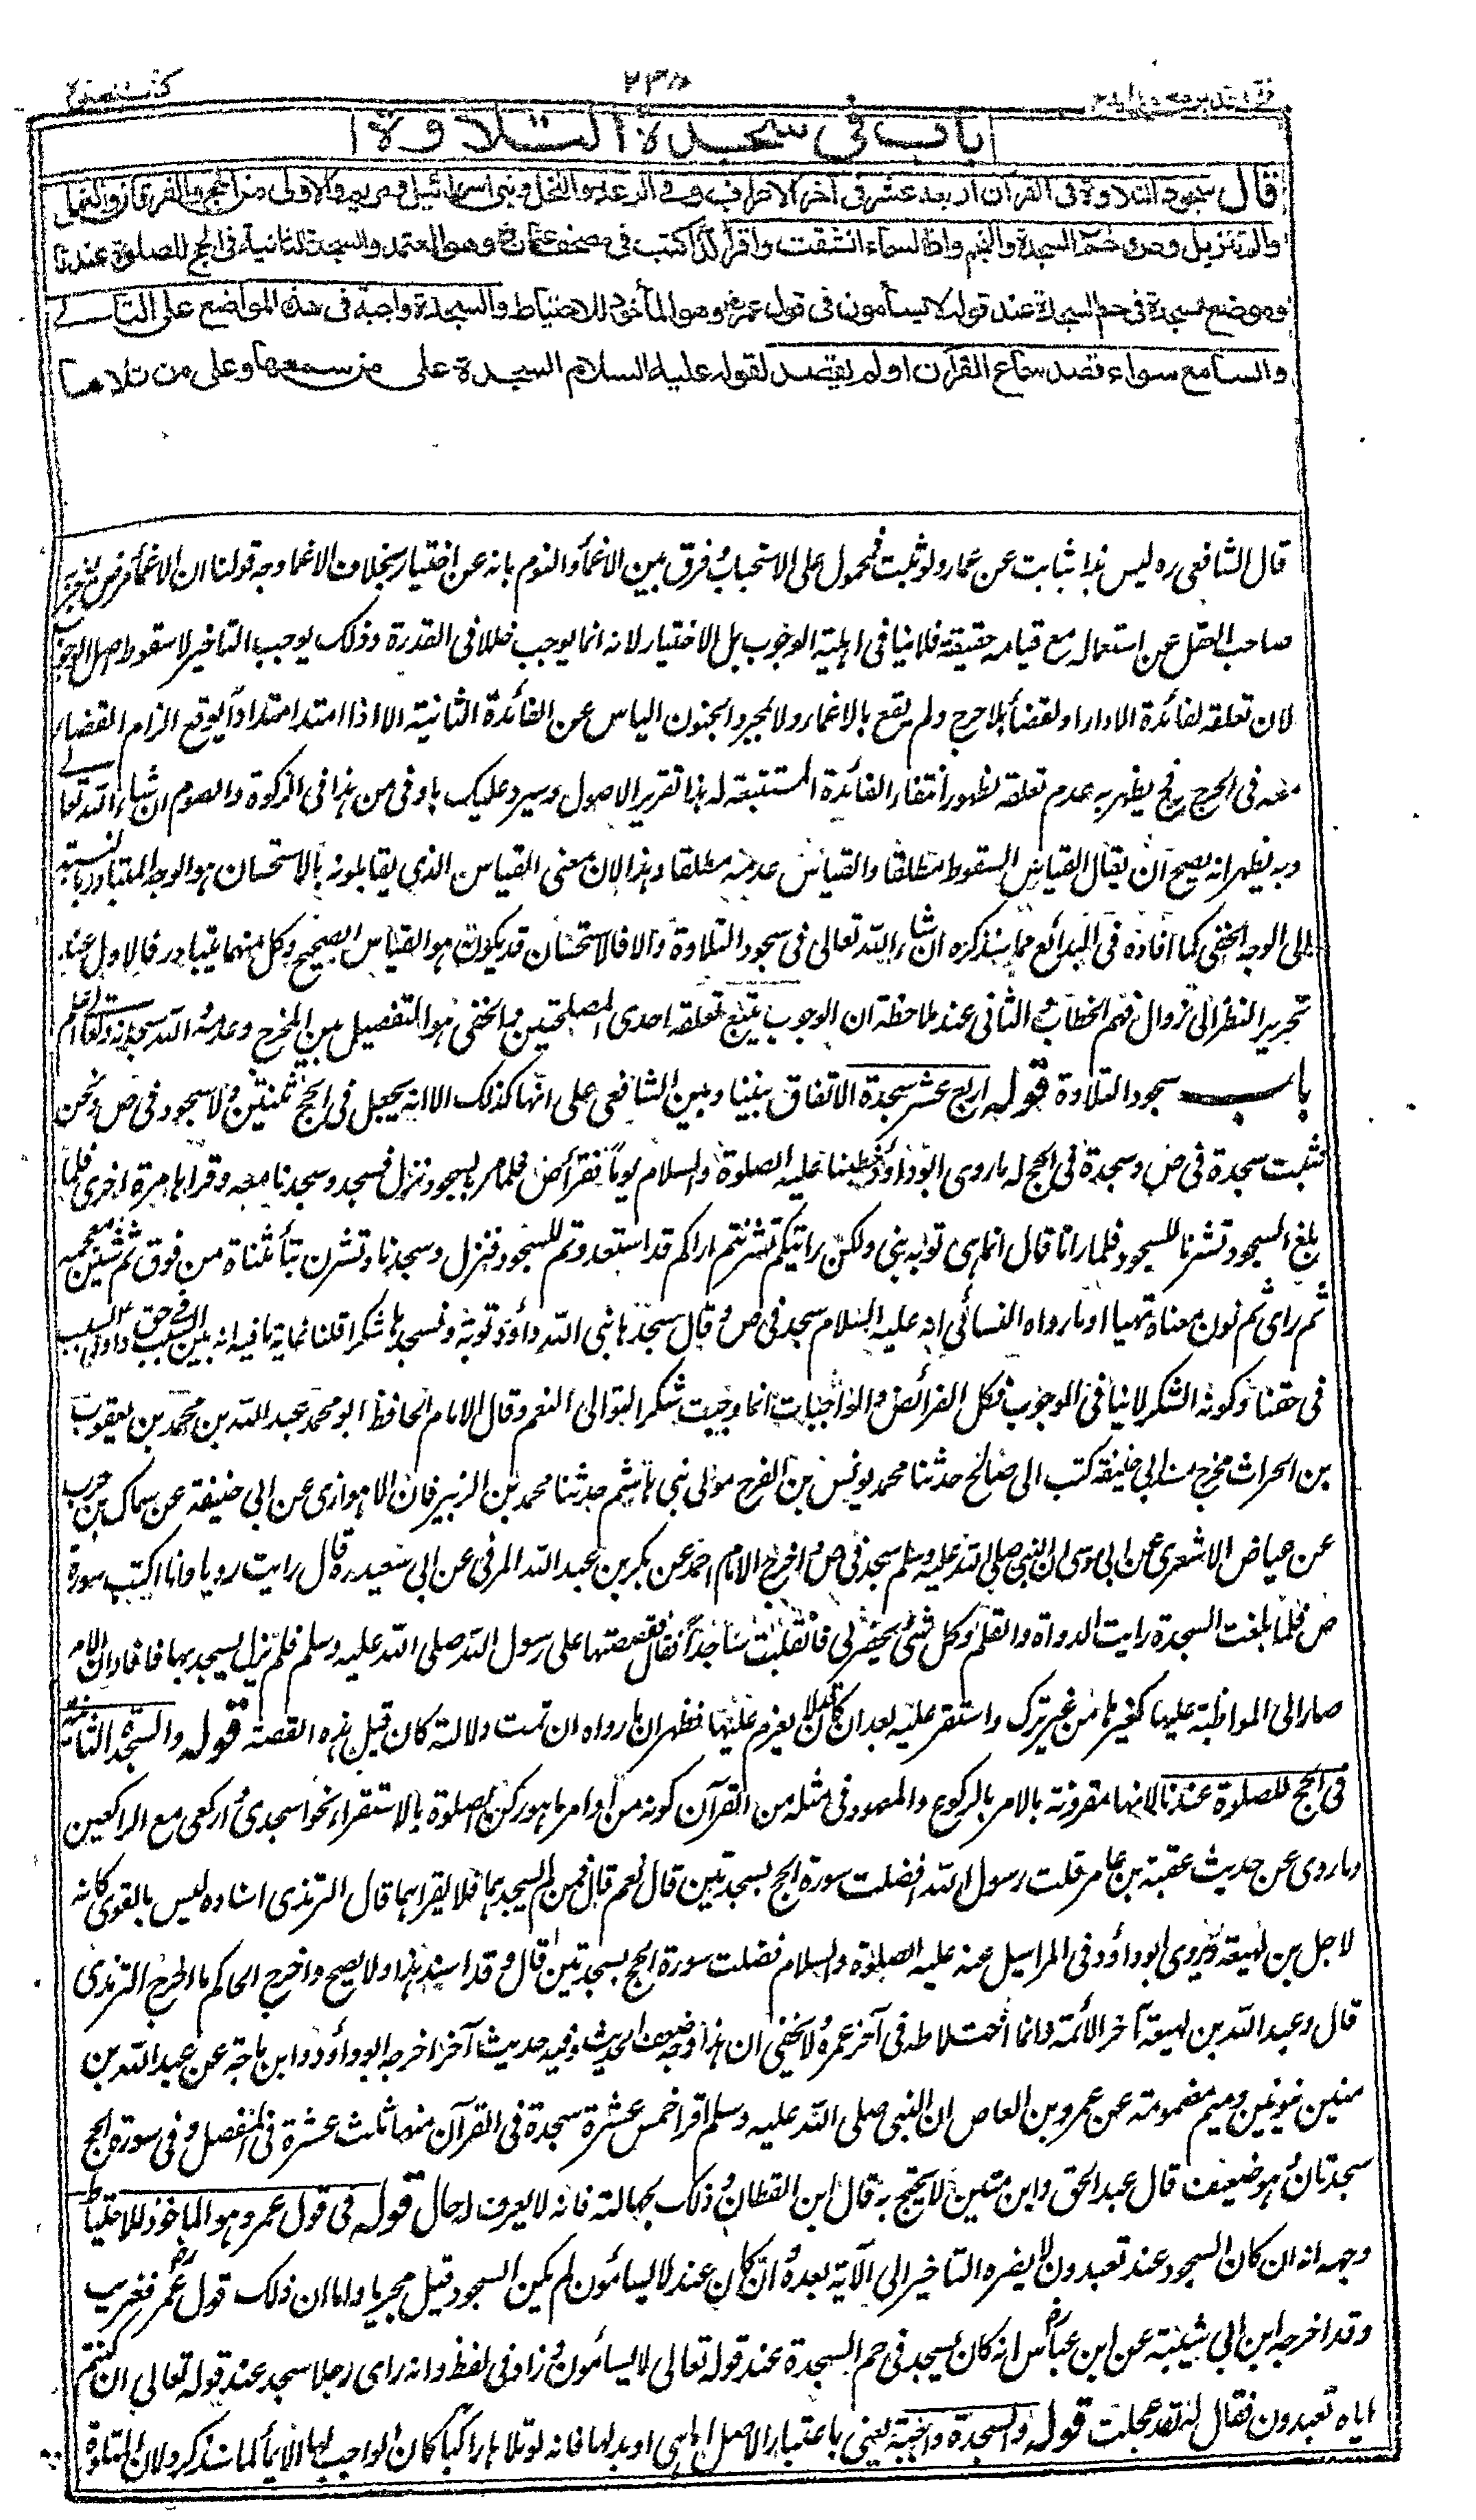 ۲۳۵
باب في سجدة التلاوة
قال سجود التلاوة في القرآن اربعة عشر في آخر الاعراف وفي الرعد والنحل وبني اسرائيل ومريم والاولى من الحج والفرقان والنمل
والم تنزيل وص وحم السجدة والنجم واذا السماء انشقت واقرأ كذا كتب في مصحف عثمان وهو المعتمد والسجدة الثانية في الحج للصلوة عندنا
وموضع السجدة في حم السجدة عند قوله لا يسأمون في قول عمر وهو المأخوذ للاحتياط والسجدة واجبة في هذه المواضع على التالي
والسامع سواء قصد سماع القرآن او لم يقصد لقوله عليه السلام السجدة على من سمعها وعلى من تلاها
قال الشافعي ره ليس هذا بثابت عن عمار ولو ثبت فمحمول على الاستحباب وفرق بين الاغماء والنوم بانه عن اختيار بخلاف الاغما وجه قولنا ان الاغماء مرض يعجز
صاحب العقل عن استعماله مع قيامه حقيقة فلا ينافي اهلية الوجوب بل الاختيار لانه انما يوجب خللا في القدرة وذلك يوجب التاخير لا سقوط اصل الوجوب
لان تعلقه لفائدة الاداء او القضاء بلا حرج ولم يقع بالاغماء ولا بمجرد الجنون الياس عن الفائدة الثانية الا اذا امتد امتدادا يوقع الزام القضاء
معه في الحرج فح يظهر به عدم تعلقه لظهور انتفاء الفائدة المستتبعة له هذا تقرير الاصول وسيرد عليك باوفى من هذا في الزكوة والصوم ان شاء الله تعالى
وبه يظهر انه يصح ان يقال القياس السقوط مطلقا والقياس عدمه مطلقا وهذا لان معنى القياس الذي يقابلونه بالاستحسان هو الوجه المتبادر بالنسبة
الى الوجه الخفي كما افاده في البدائع مما سنذكره ان شاء الله تعالى في سجود التلاوة والا فالاستحسان قد يكون هو القياس الصحيح وكل منهما يتبادر فالاول عند
تجريد النظر الى زوال فهم الخطاب والثاني عند ملاحظة ان الوجوب يتبع تعلقه احدى المصلحتين والخفي هو التفصيل بين المحرج وعدمه الله سبحانه وتعالى اعلم
باب سجود التلاوة قوله اربع عشر سجدة الاتفاق بيننا وبين الشافعي على انها كذلك الا انه يجعل في الحج ثنتين ولا سجود في ص ونحن
نثبت سجدة في ص وسجدة في الحج له ما روى ابو داؤد خطبنا عليه الصلوة والسلام يوما فقرأ ص فلما مر بالسجود نزل فسجد وسجدنا معه وقراها مرة اخرى فلما
بلغ السجود تشزنا للسجود فلما رانا قال انما هي توبة نبي ولكن رايتكم تشزنتم اراكم قد استعددتم للسجود فنزل وسجدنا وتشزن بتاء مثناة من فوق ثم شين معجمة
ثم زاى ثم نون معناه تهيأ او ما رواه النسائي انه عليه السلام سجد في ص وقال سجدها نبي الله داؤد توبة ونسجدها شكرا قلنا غاية ما فيه انه بين السبب في حق داؤد والسبب
في حقنا وكونه الشكر لا ينافي الوجوب فكل الفرائض والواجبات انما وجبت شكرا لتوالي النعم وقال الامام الحافظ ابو محمد عبد الله بن محمد بن يعقوب
بن الحراث مخرج مسند ابي حنيفة كتب الى صالح حدثنا محمد يونس بن الفرج مولى بني هاشم حدثنا محمد بن الزبير فان الاهوازي عن ابي حنيفة عن سماك بن حرب
عن عياض الاشعري عن ابي موسى ان النبي صلى الله عليه وسلم سجد في ص واخرج الامام احمد عن بكر بن عبد الله المزني عن ابي سعيد ره قال رايت رويا وانا اكتب سورة
ص فلما بلغت السجدة رايت الدواة والقلم وكل شئ يحضرني فانقلبت ساجدا فقال فقصصتها على رسول الله صلى الله عليه وسلم فلم يزل يسجد بها فافاد ان الامر
صار الى المواظبة عليها كغيرها من غير ترك واستقر عليه بعد ان كان لا يعزم عليها فظهر ان ما رواه ان تمت دلالة كان قبل هذه القصة قوله والسجدة الثانية
في الحج للصلوة عندنا لانها مقرونة بالامر بالركوع والمعهود في مثله من القرآن كونه من اوامر ما هو ركن الصلوة بالاستقراء نحو اسجدي واركعي مع الراكعين
وما روي عن حديث عقبة بن عامر قلت رسول الله افضلت سورة الحج بسجدتين قال نعم قال فمن لم يسجدهما فلا يقراهما قال الترمذي اسناده ليس بالقوي كانه
لاجل بن لهيعة وروى ابو داؤد في المراسيل عنه عليه الصلوة والسلام فضلت سورة الحج بسجدتين قال وقد اسند هذا ولا يصح واخرج الحاكم ما اخرج الترمذي
قال وعبد الله بن لهيعة آخر الائمة وانما اختلاطه في آخر عمره ولا يخفى ان هذا وجه ضعف الحديث وفيه حديث آخر اخرجه ابو داؤد وابن ماجة عن عبد الله بن
منين بنونين وميم مضمومة عن عمرو بن العاص ان النبي صلى الله عليه وسلم اقرأ خمس عشرة سجدة في القرآن منها ثلث عشرة في المفصل وفي سورة الحج
سجدتان وهو ضعيف قال عبد الحق وابن منين لا يحتج به قال ابن القطان وذلك بجهالته فانه لا يعرف له حال قوله في قول عمر وهو الماخوذ للاحتياط
وجهه انه ان كان السجود عند تعبدون لا يضره التاخير الى الآية بعده وان كان عند لا يسأمون لم يكن السجود قبل مجزيا واما ان ذلك قول عمر فغريب
وقد اخرجه ابن ابي شيبة عن ابن عباس انه كان يسجد في حم السجدة عند قوله تعالى لا يسأمون وزاد في لفظ وانه راى رجلا سجد عند قوله تعالى ان كنتم
اياه تعبدون فقال له لقد عجلت قوله والسجدة واجبة يعني باعتبار الاصل هي او بدلها فانه لو تلاها راكبا كان الواجب لها الايماء كما سنذكر ولان التلاوة